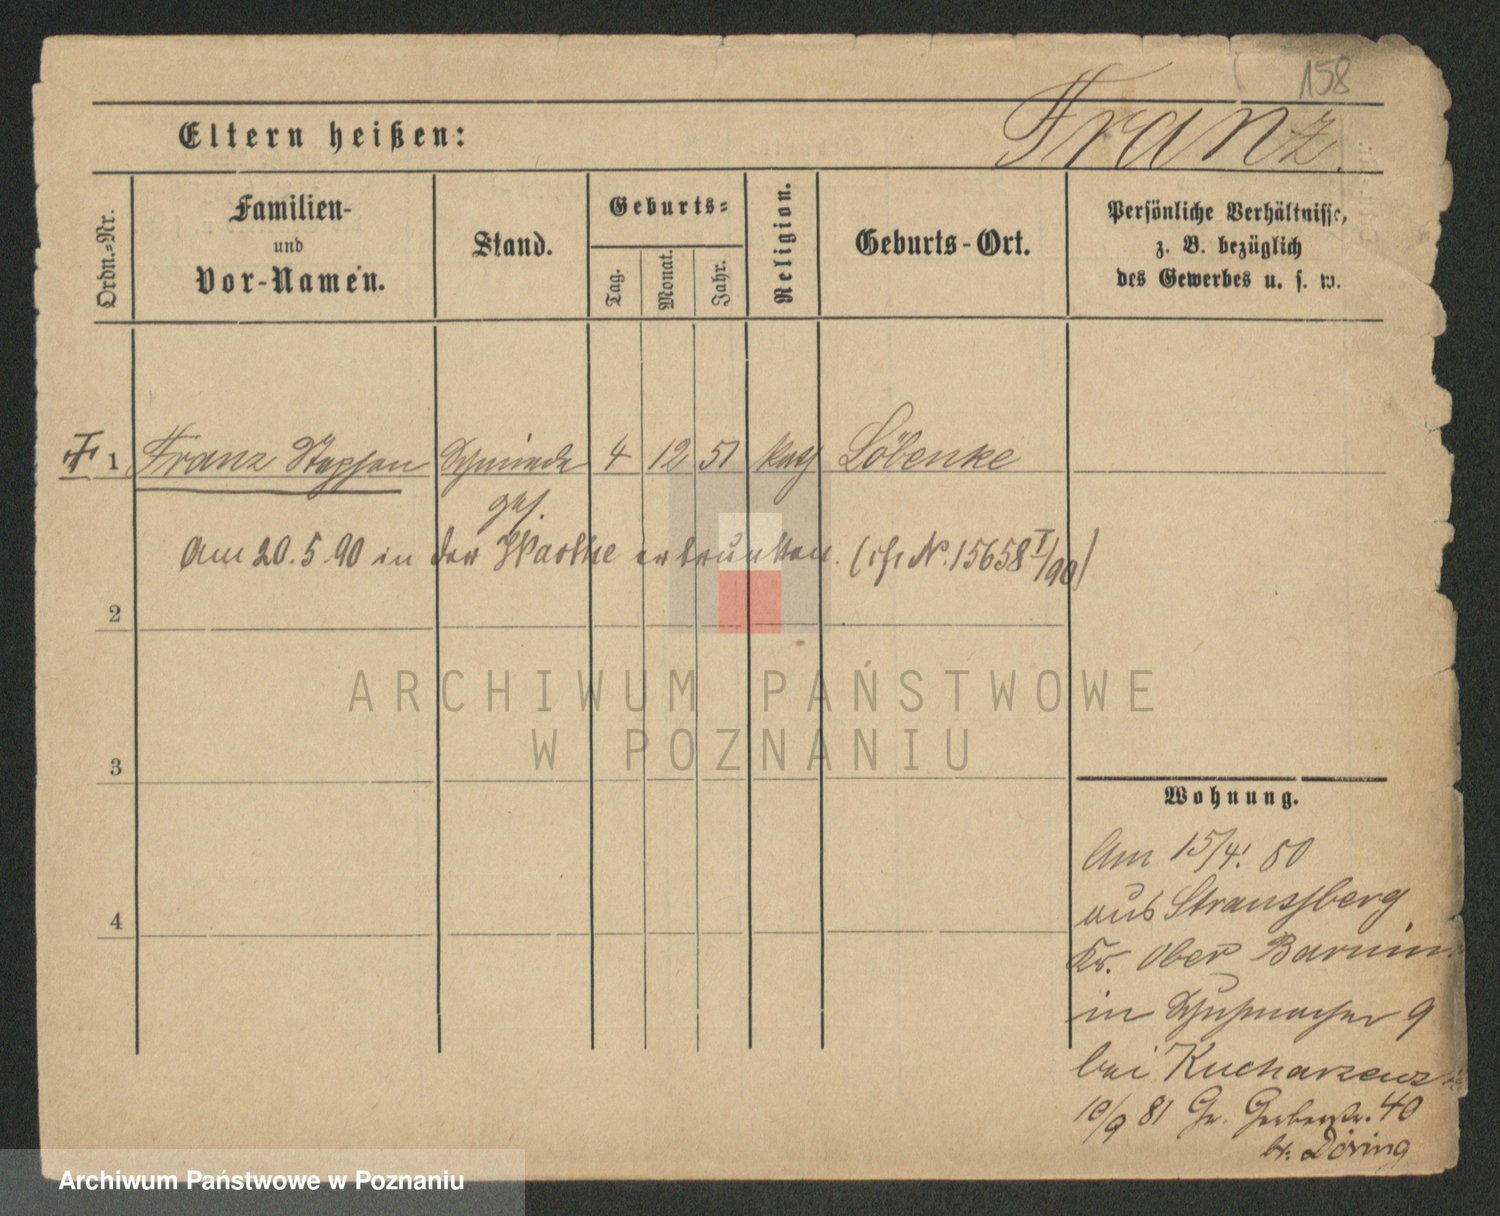 158
Eltern heißen:
Franz
Ordn.-Nr.
Familien-
und
Vor-Namen.
Stand.
Geburts-
Tag.
Monat.
Jahr.
Religion.
Geburts-Ort.
Persönliche Verhältnisse,
z. B. bezüglich
des Gewerbes u. s. w.
1 Franz Stephan Schmiede 4 12 51 kath Löbenke
ges.
Am 20.5.90 in der Warthe ertrunken. (cfr N. 15658 I/90)
2
ARCHIWUM PAŃSTWOWE
W POZNANIU
3
4
Wohnung.
Am 15/4. 80
aus Straussberg
Kr. Ober Barnim
in Schuhmacher 9
bei
10/9 81 Gr. Gerberstr. 40
b. Döring
Archiwum Państwowe w Poznaniu